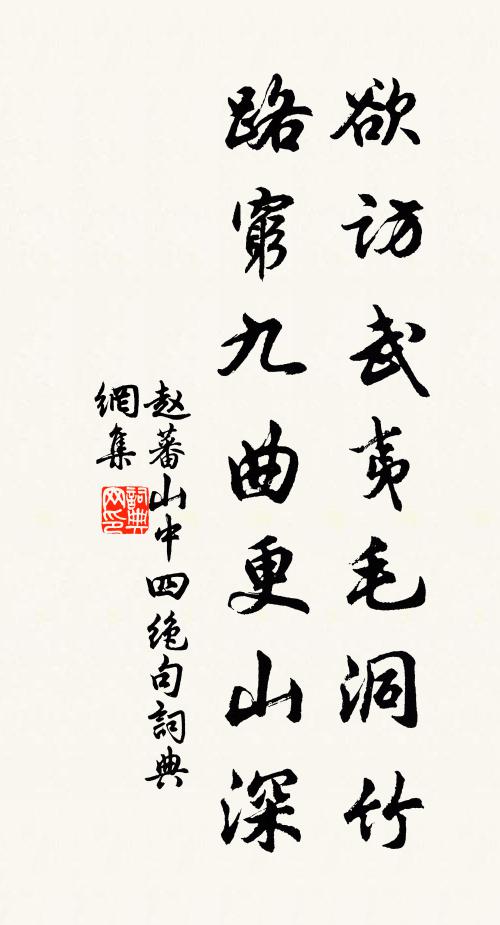 欲訪武夷毛洞竹
路窮九曲更山深
赵蕃山中四绝句詞典
網集
詞典
网印